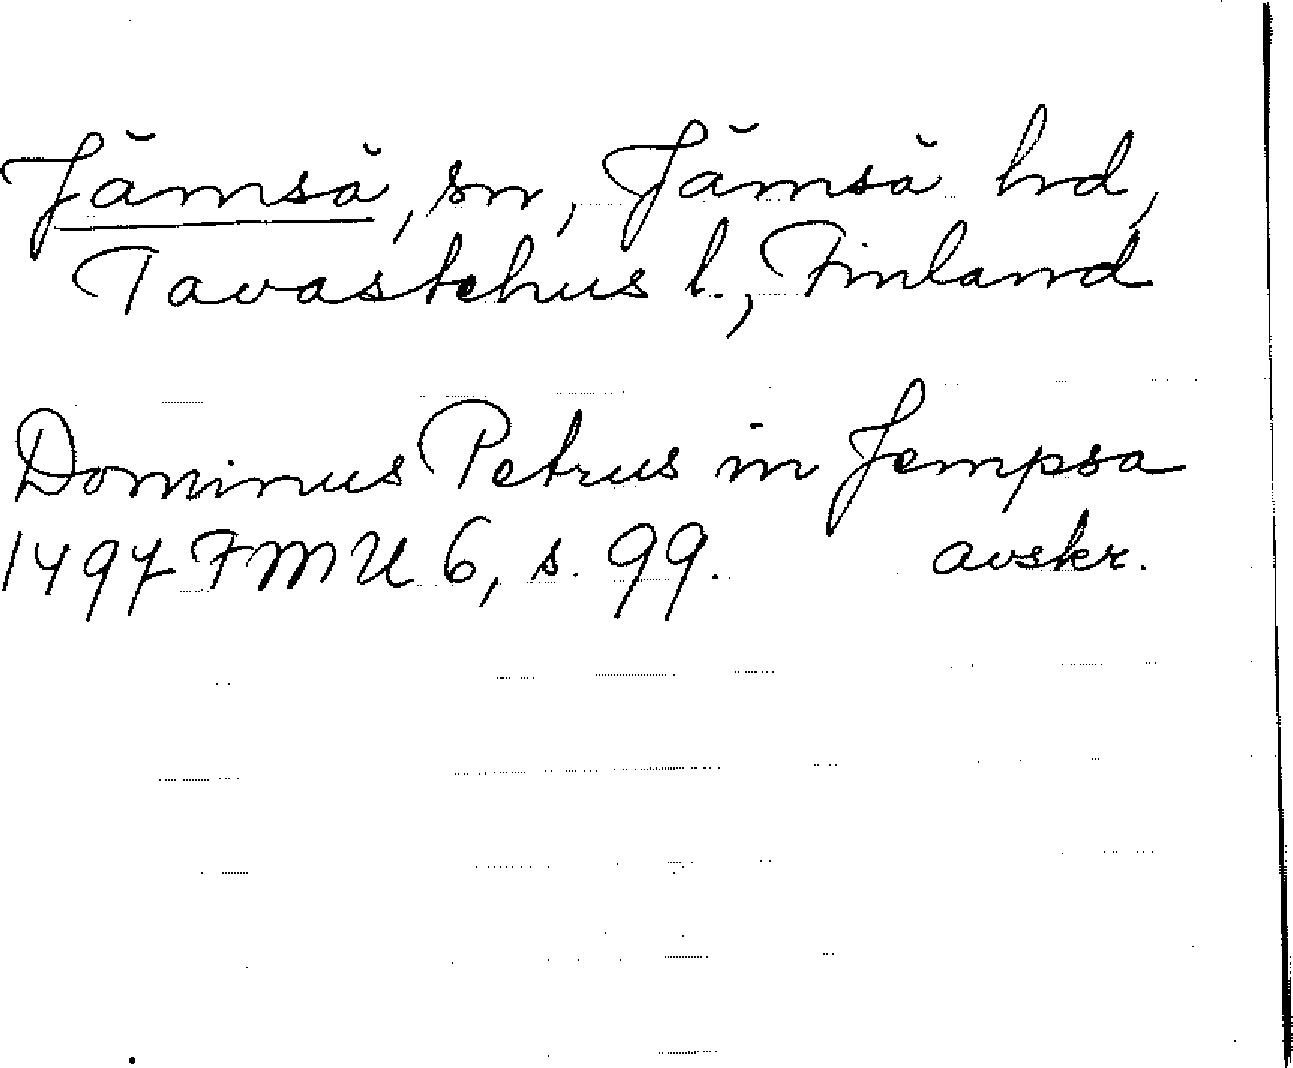 Jämsä, sn, Jämsä hd,
Tavastehus l., Finland
Dominus Petrus in Jempsa
1497 FMU 6, s. 99. avskr.